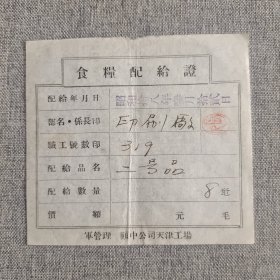 食糧配給證
配給年月日
部名・係長印 印刷廠
職工號數印 319
配給品名 二号品
配給數量 8 瓩
價額 元 毛
軍管理 中公司天津工場